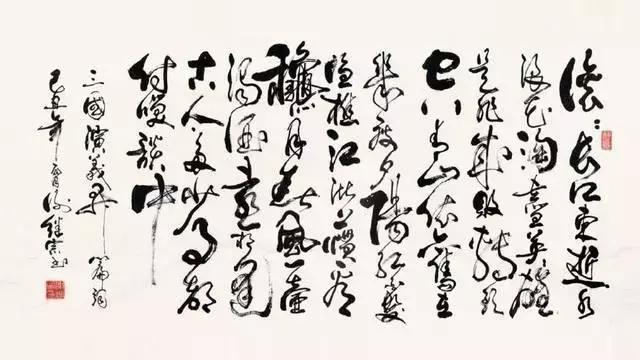 滚滚长江东逝水
浪花淘尽英雄
是非成败转头
空青山依舊在
几度夕陽红白髮
渔樵江渚上惯看
穐月春風一壶
濁酒喜相逢
古今多少事都
付笑谈中
三國演義开篇词
己丑年